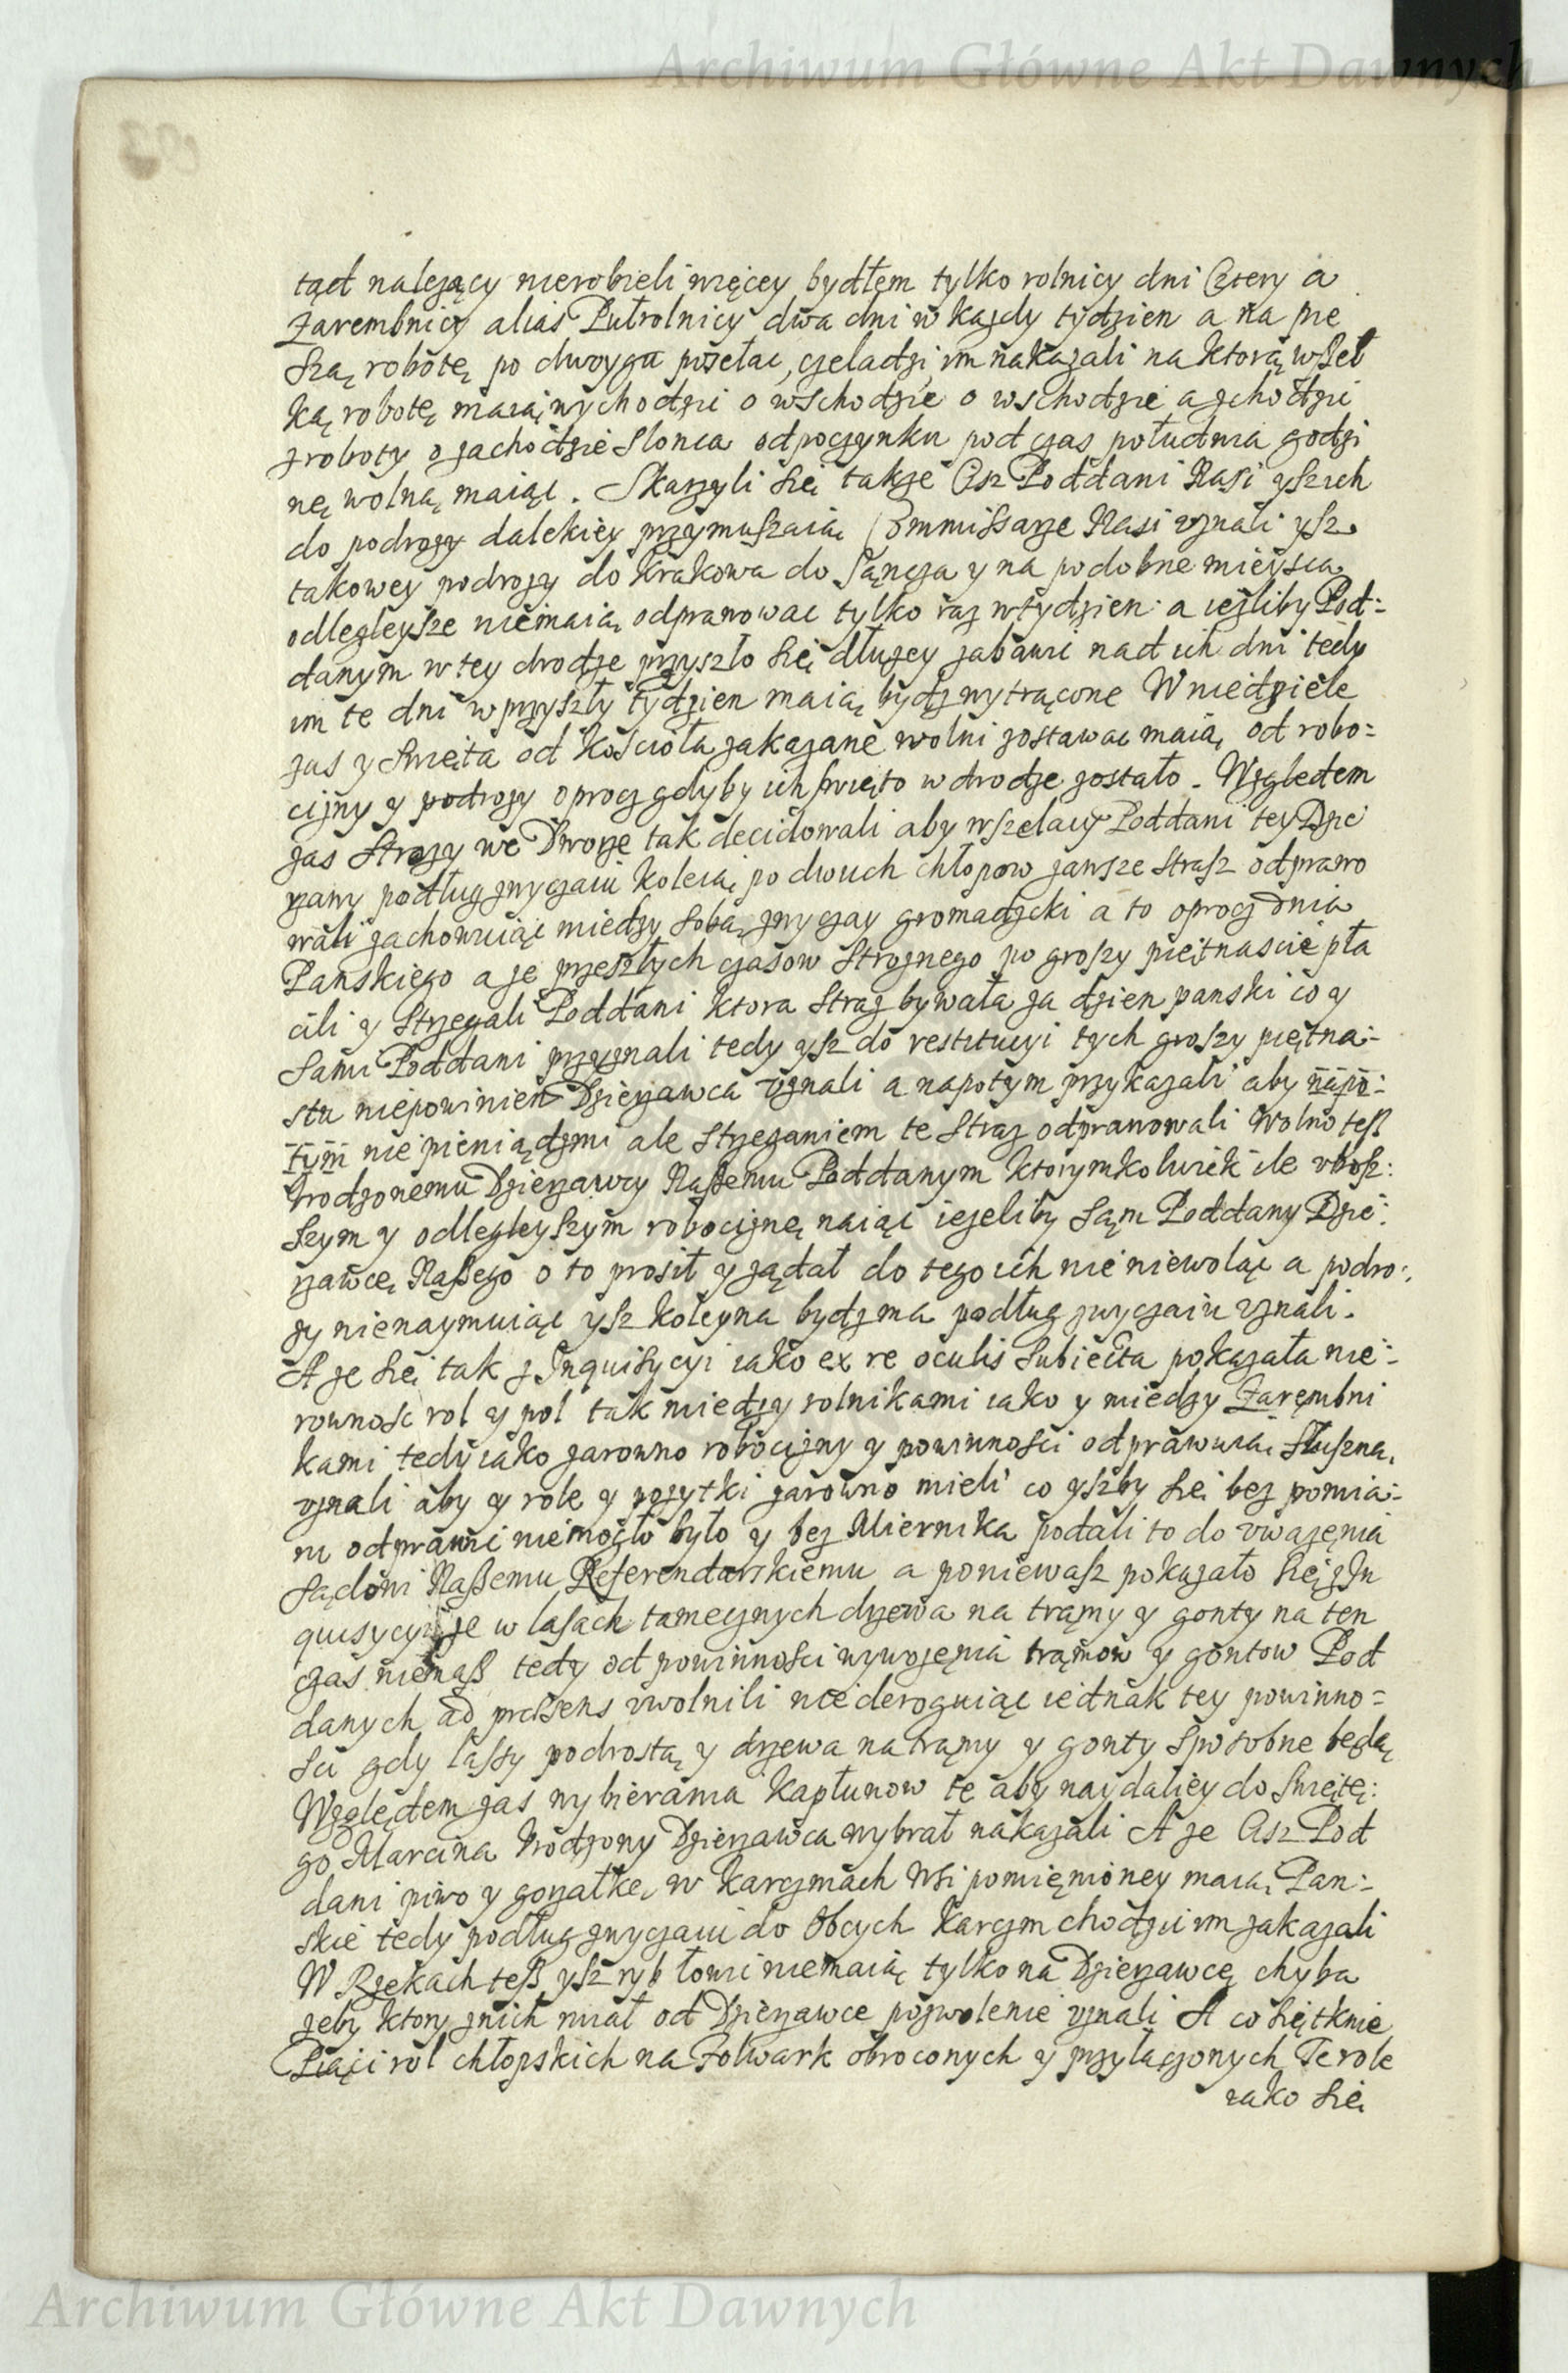 Archiwum Główne Akt Dawnych
tąd należący nierobieli więcey bydłem tylko rolnicy dni Cztery a
Zarembnicy alias Pułrolnicy dwa dni w każdy tydzien a na pie
szą robotę po dwoyga posełac, czeladzi im nakazali na ktorą wszel
ką robotę maią wychodzić o wschodzie o wschodzie a zchodzić
z roboty o zachodzie Slonca odpoczynku pod czas południa godzi
nę wolną maiąc. Skarzyli się także Ciż Poddani Nasi ysz ich
do podrozy dalekiey przymuszaią Commissarze Nasi uznali ysz
takowey podrozy do Krakowa do Sącza y na podobne mieysca
odlegleysze niemaią odprawowac tylko raz w tydzien: a ieżliby Pod=
danym w tey drodze przyszło się dłużey zabawic nad ich dni tedy
im te dni w przyszły tydzien maią bydz wytrącone W niedziele
zas y Swięta od Kościoła zakazane wolni zostawac maią od robo=
cizny y podrozy oprocz gdyby ich swięto w drodze zostało. Względem
zas Strozy we Dworze tak decidowali aby wszelacy Poddani tey Dzie
rzawy podług zwyczaiu koleią po dwuch chłopow zawsze straż odprawo
wali zachowuiąc miedzy sobą zwyczay gromadzki a to oprocz dnia
Panskiego a że przeszłych czasow Stroznego po groszy piętnascie pła
cili y Strzegali Poddani ktora straz bywała za dzien panski co y
sami Poddani przyznali tedy ysz do restitucyi tych groszy piętna=
stu niepowinien Dzierzawca uznali a napotym przykazali aby napo=
tym nie pieniądzmi ale strzeganiem te straz odprawowali Wolno tesz
Urodzonemu Dzierzawcy Naszemu Poddanym ktorymkolwiek ile ubosz=
szym y odlegleyszym robociznę naiąc ieżeliby sąm Poddany Dzie=
rzawcę Naszego o to prosił y ządał do tego ich nie niewoląc a podro=
zy nienaymuiąc ysz koleyna bydz ma podług zwyczaiu uznali.
A że się tak z Inquisycyi iako ex re oculis subiecta pokazała nie=
rownosc rol y pol tak miedzy rolnikami iako y miedzy Zarębni
kami tedy iako zarowno robocizny y powinności odprawuią słuszna,
uznali aby y role y pożytki zarowno mieli co yszby się bez pomia=
ru odprawić niemogło było y bez Miernika podali to do uwazęnia
Sądowi Naszemu Referendarskiemu a poniewasz pokazało się z In
quisycyi że w lasach tamecznych drzewa na tramy y gonty na ten
czas niemasz tedy od powinności wywożęnia tramow y gontow Pod
danych ad praesens uwolnili niederoguiąc iednak tey powinno=
sci gdy lassy podrostą y drzewa na tramy y gonty sposobne będą
Względem zas wybierania Kapłunow te aby naydaliey do Swiętę=
go Marcina Urodzony Dzierzawca wybrał nakazali A że Ciż Pod
dani piwo y gorzałkę w karczmach Wsi pomięnioney maią Pan=
skie tedy podług zwyczaiu do Obcych karczm chodzic im zakazali
W Rzekach tesz ysz ryb łowic niemaią tylko na Dzierzawcę chyba
żeby ktory z nich miał od Dzierzawce pozwolenie uznali A co się tknie
Piąci rol chłopskich na Folwark obroconych y przyłączonych Te role
iako się
Archiwum Główne Akt Dawnych